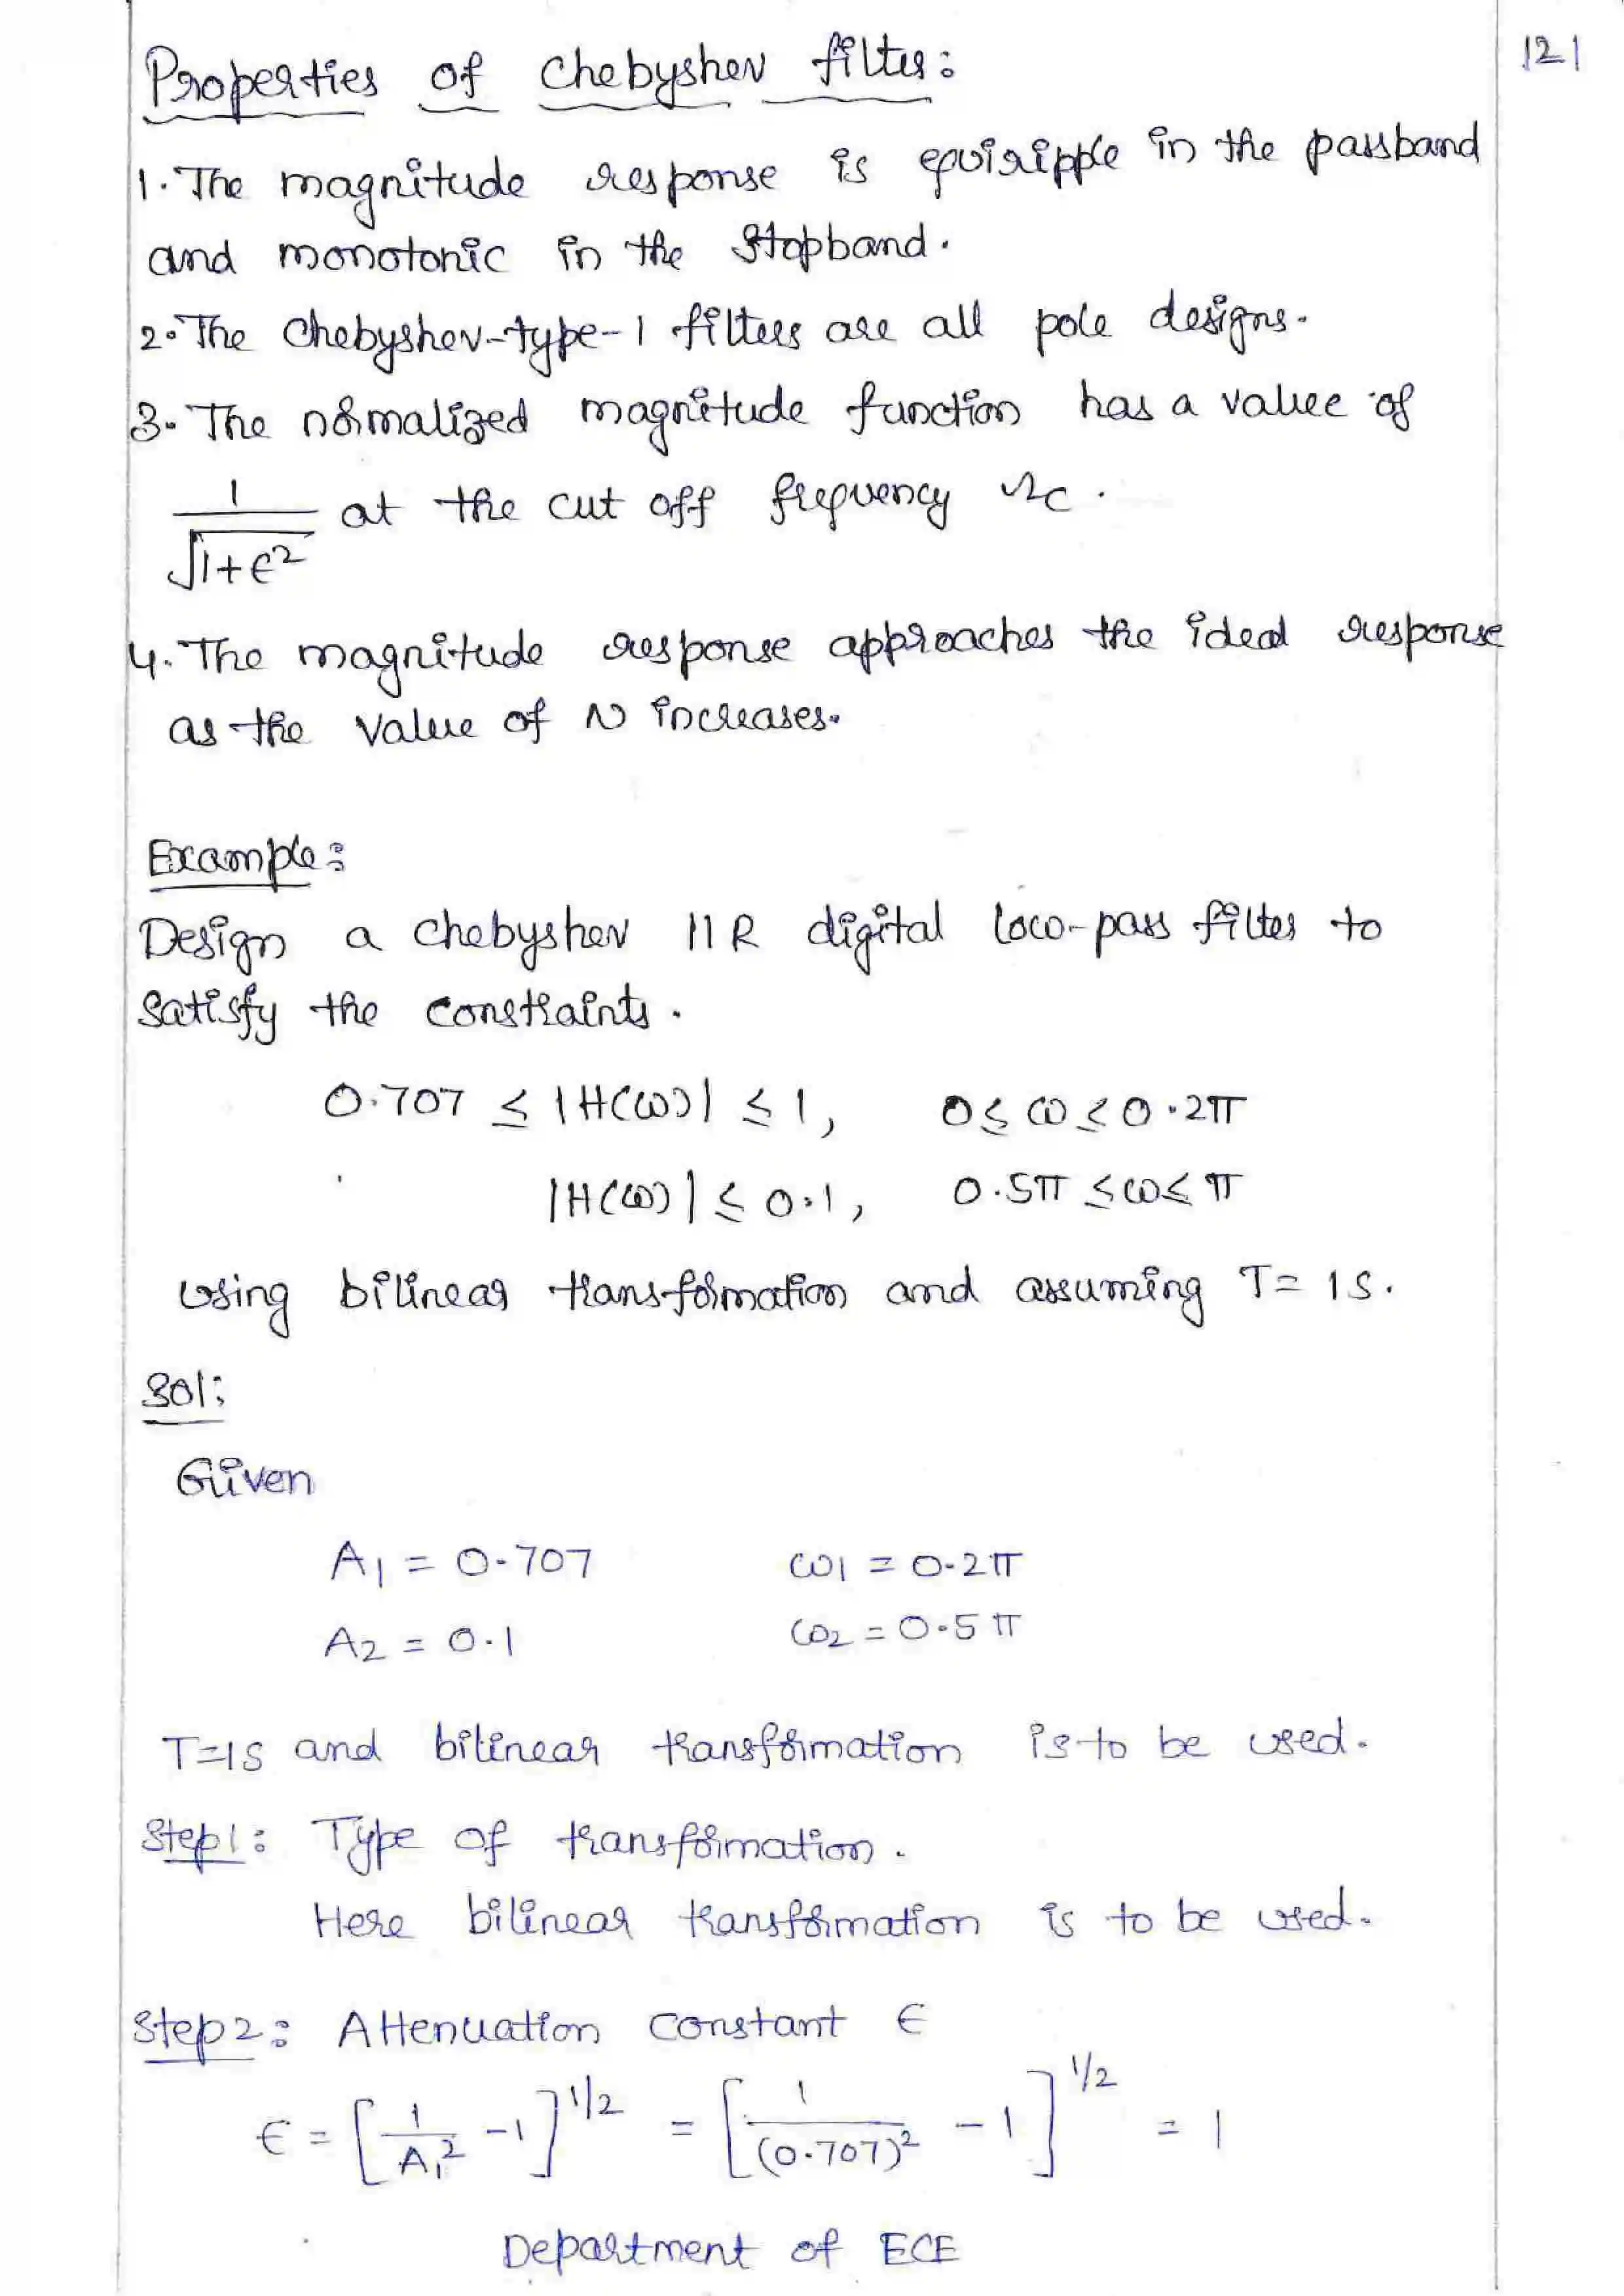 121
Properties of Chebyshev filter:
1. The magnitude response is equiripple in the passband
and monotonic in the Stopband.
2. The Chebyshev-type-1 filters are all pole designs.
3. The normalized magnitude function has a value of
1/√1+ϵ² at the cut off frequency Ωc.
4. The magnitude response approaches the ideal response
as the value of N increases.
Example:
Design a Chebyshev IIR digital low-pass filter to
Satisfy the constraints.
0.707 ≤ |H(ω)| ≤ 1, 0 ≤ ω ≤ 0.2π
|H(ω)| ≤ 0.1, 0.5π ≤ ω ≤ π
using bilinear transformation and assuming T = 1s.
Sol:
Given
A1 = 0.707 ω1 = 0.2π
A2 = 0.1 ω2 = 0.5π
T=1s and bilinear transformation is to be used.
Step1: Type of transformation.
Here bilinear transformation is to be used.
Step2: Attenuation constant ϵ
ϵ = [1/A₁² -1]^1/2 = [1/(0.707)² - 1]^1/2 = 1
Department of ECE